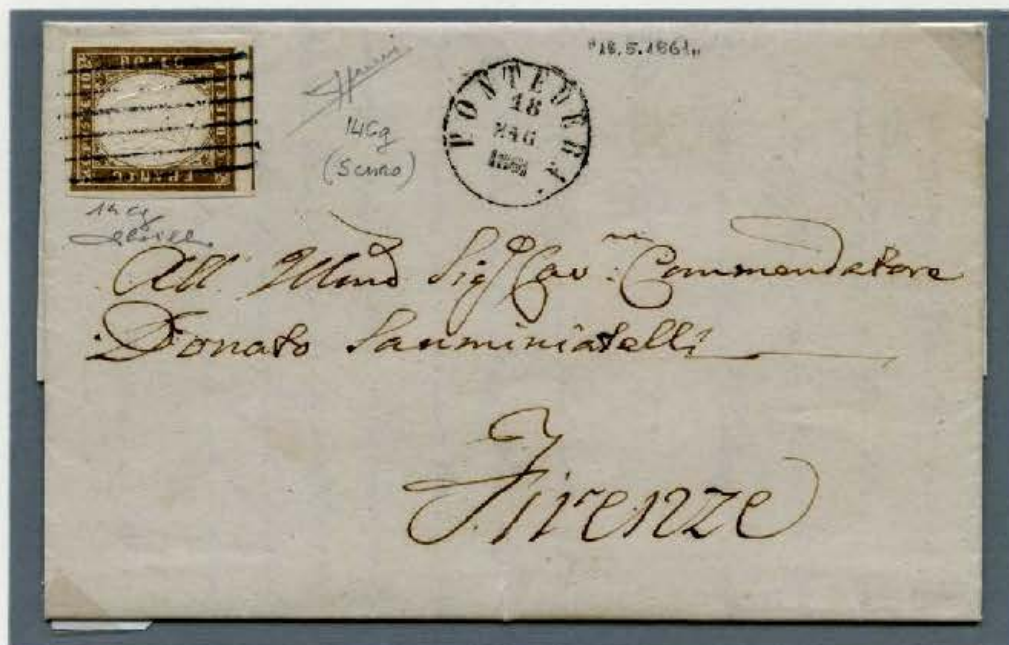 "18.5.1861"
PONTEDERA
18
MAG
1861
14Cg
(Scuro)
14 Cg
All' Illmo Sigr Cav: Commendatore
Donato Sanminiatelli
Firenze